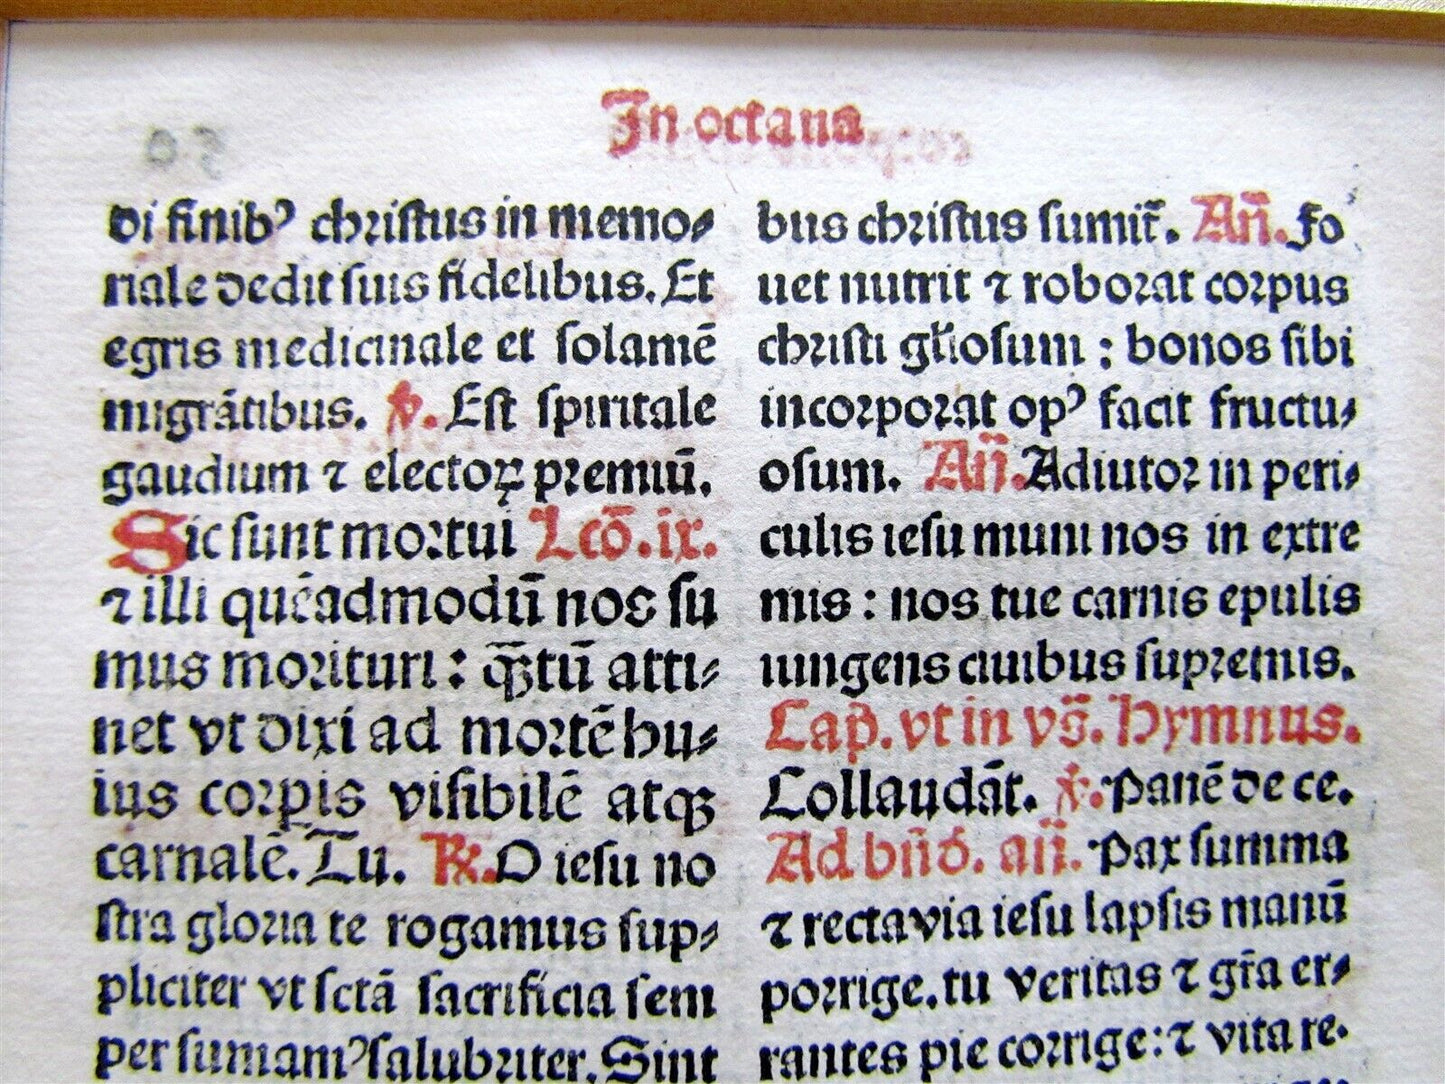 In octaua
di finibꝰ christus in memo⸗
riale dedit suis fidelibus. Et
egris medicinale et solamē
migrātibus. ℣. Est spiritale
gaudium ⁊ electoꝝ premiū.
Sic sunt mortui Lcō. ix.
⁊ illi quēadmodū nos su
mus morituri : q̄ꝫtū atti⸗
net vt dixi ad mortē hu⸗
ius corꝑis visibilē atqꝫ
carnalē. Tu. ℞. O iesu no
stra gloria te rogamus sup⸗
pliciter vt sctā sacrificia sem
per sumamꝰ salubriter. Sint
bus christus sumit̄. Añ. Fo
uet nutrit ⁊ roborat corpus
christi gl̄iosum : bonos sibi
incorporat opꝰ facit fructu⸗
osum. Añ. Adiutor in peri⸗
culis iesu muni nos in extre
mis : nos tue carnis epulis
iungens ciuibus supremis.
Cap̄. vt in vs̄. Hymnus.
Collaudāt. ℣. Panē de ce.
Ad bñd̄. añ. Pax summa
⁊ recta via iesu lapsis manū
porrige. tu veritas ⁊ gr̄a er⸗
rantes pie corrige: ⁊ vita re⸗